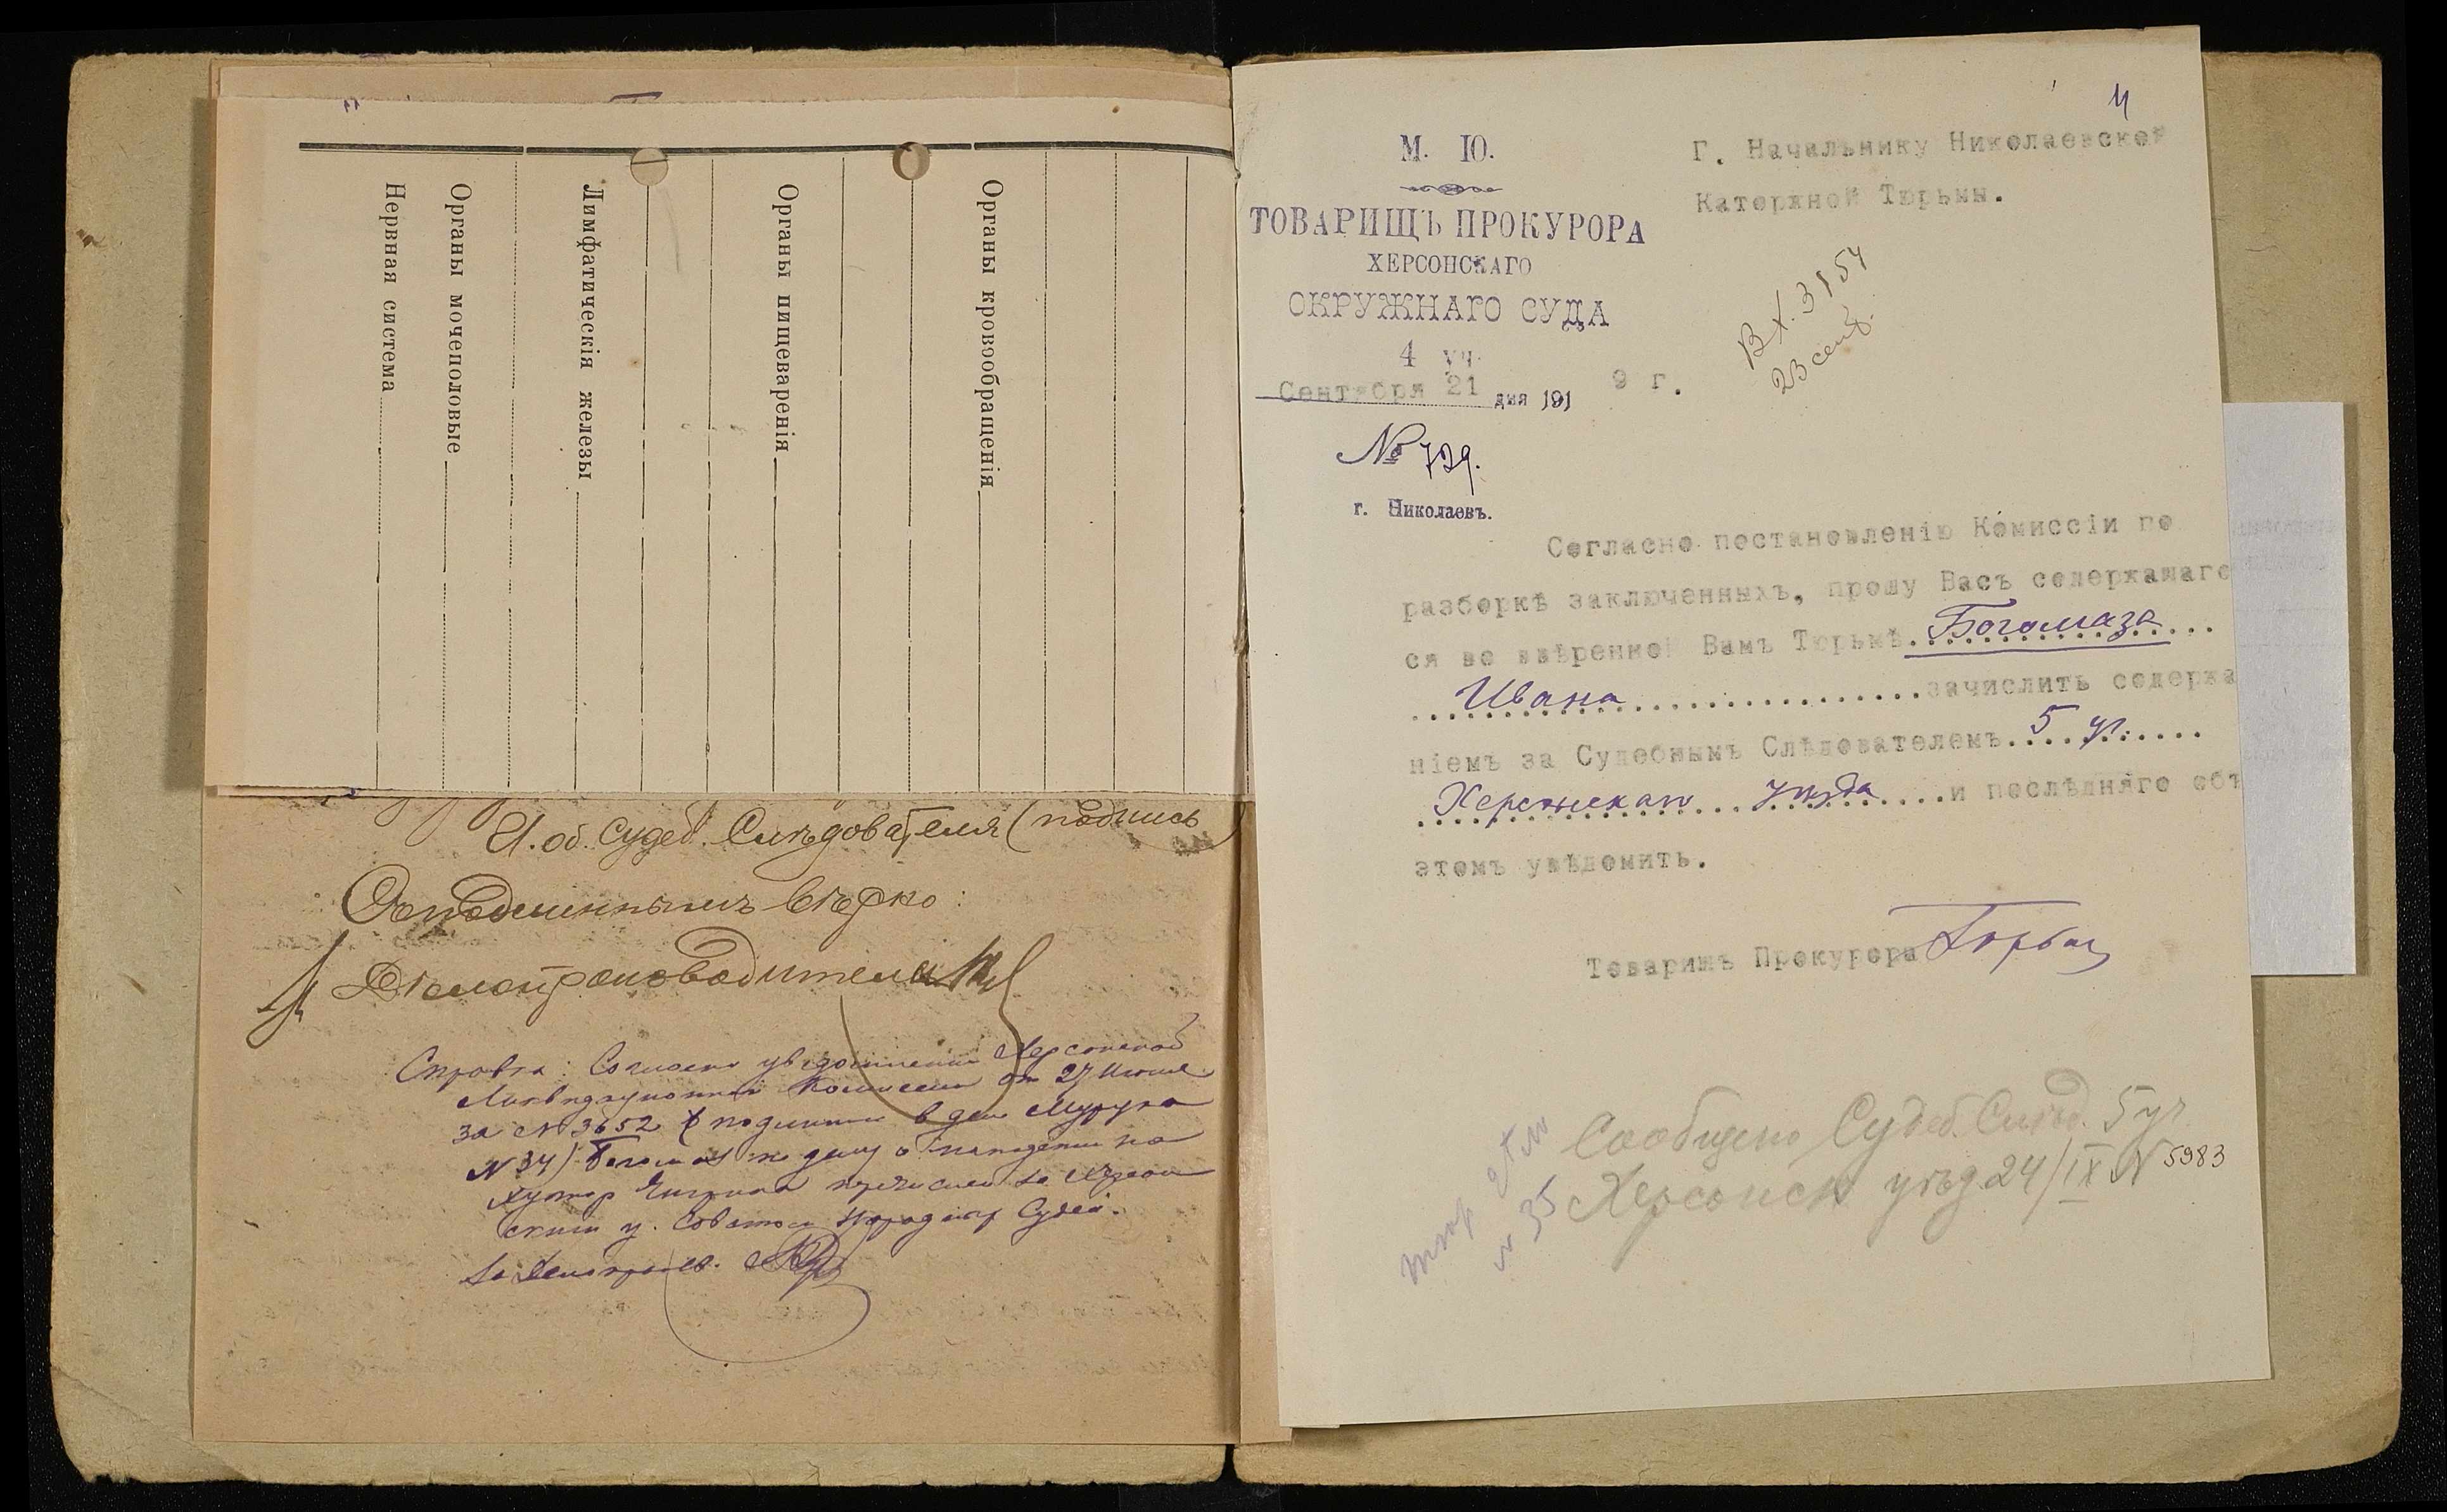 Органы кровообращенія
Органы пищеваренія
Лимфатическія железы
Органы мочеполовые
Нервная система
И. об. Судеб. Слѣдователя (подпись
Съ подлиннымъ вѣрно:
Дѣлопроизводитель
Справка: Согласно уведомления Херсонской
Ликвидационной Комиссии от 27 Июня
за № 3652 (подлинник в деле
№ 34) Богомаз по делу о нападении на
хутор перечислен за Херсон
ским у. Советом Народных Судей.
За Делопроизв.
4
М. Ю.
ТОВАРИЩЪ ПРОКУРОРА
ХЕРСОНСКАГО
ОКРУЖНАГО СУДА
4 уч.
Сентября 21 дня 1919 г.
№ 729.
г. Николаевъ.
Г. Начальнику Николаевской
Каторжной Тюрьмы.
Вх. 3154
23 сент.
Согласно постановленію Комиссіи по
разборкѣ заключенныхъ, прошу Васъ содержащаго
ся во ввѣренной Вамъ Тюрьмѣ. Богомаза
Ивана зачислить содержа
ніемъ за Судебнымъ Слѣдователемъ 5 уч.
Херсонскаго уѣзда и послѣдняго объ
этомъ увѣдомить.
Товарищъ Прокурора
Сообщено Судеб. Слѣд. 5 уч.
Херсонск уѣзд. 24/IX № 5983
№ 35